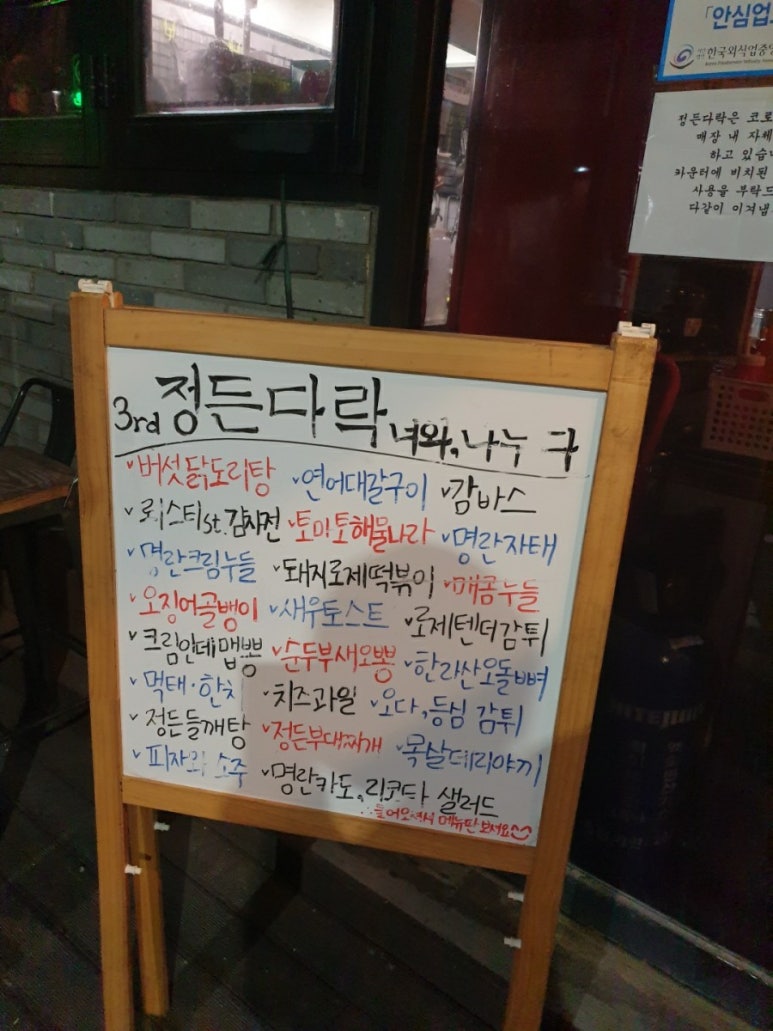 「안심업
한국외식업중앙
정든다락은 코로
매장 내 자체
하고 있습니
카운터에 비치된
사용을 부탁드
다같이 이겨냅
3rd 정든다락 너와,나누 구
버섯닭도리탕 연어대갈구이 감바스
뢰스티st.감자전 토마토해물나라 명란자태
명란크림누들 돼지로제떡볶이 매콤누들
오징어골뱅이 새우토스트 로제텐더감튀
크림안데맵뽕 순두부새오뽕 한라산오돌뼈
먹태·한치 치즈과일 오다,등심 감튀
정든들깨탕 정든부대찌개 목살데리야끼
피자와 소주 명란카도,리코타 샐러드
들어오셔서 메뉴판 보세요